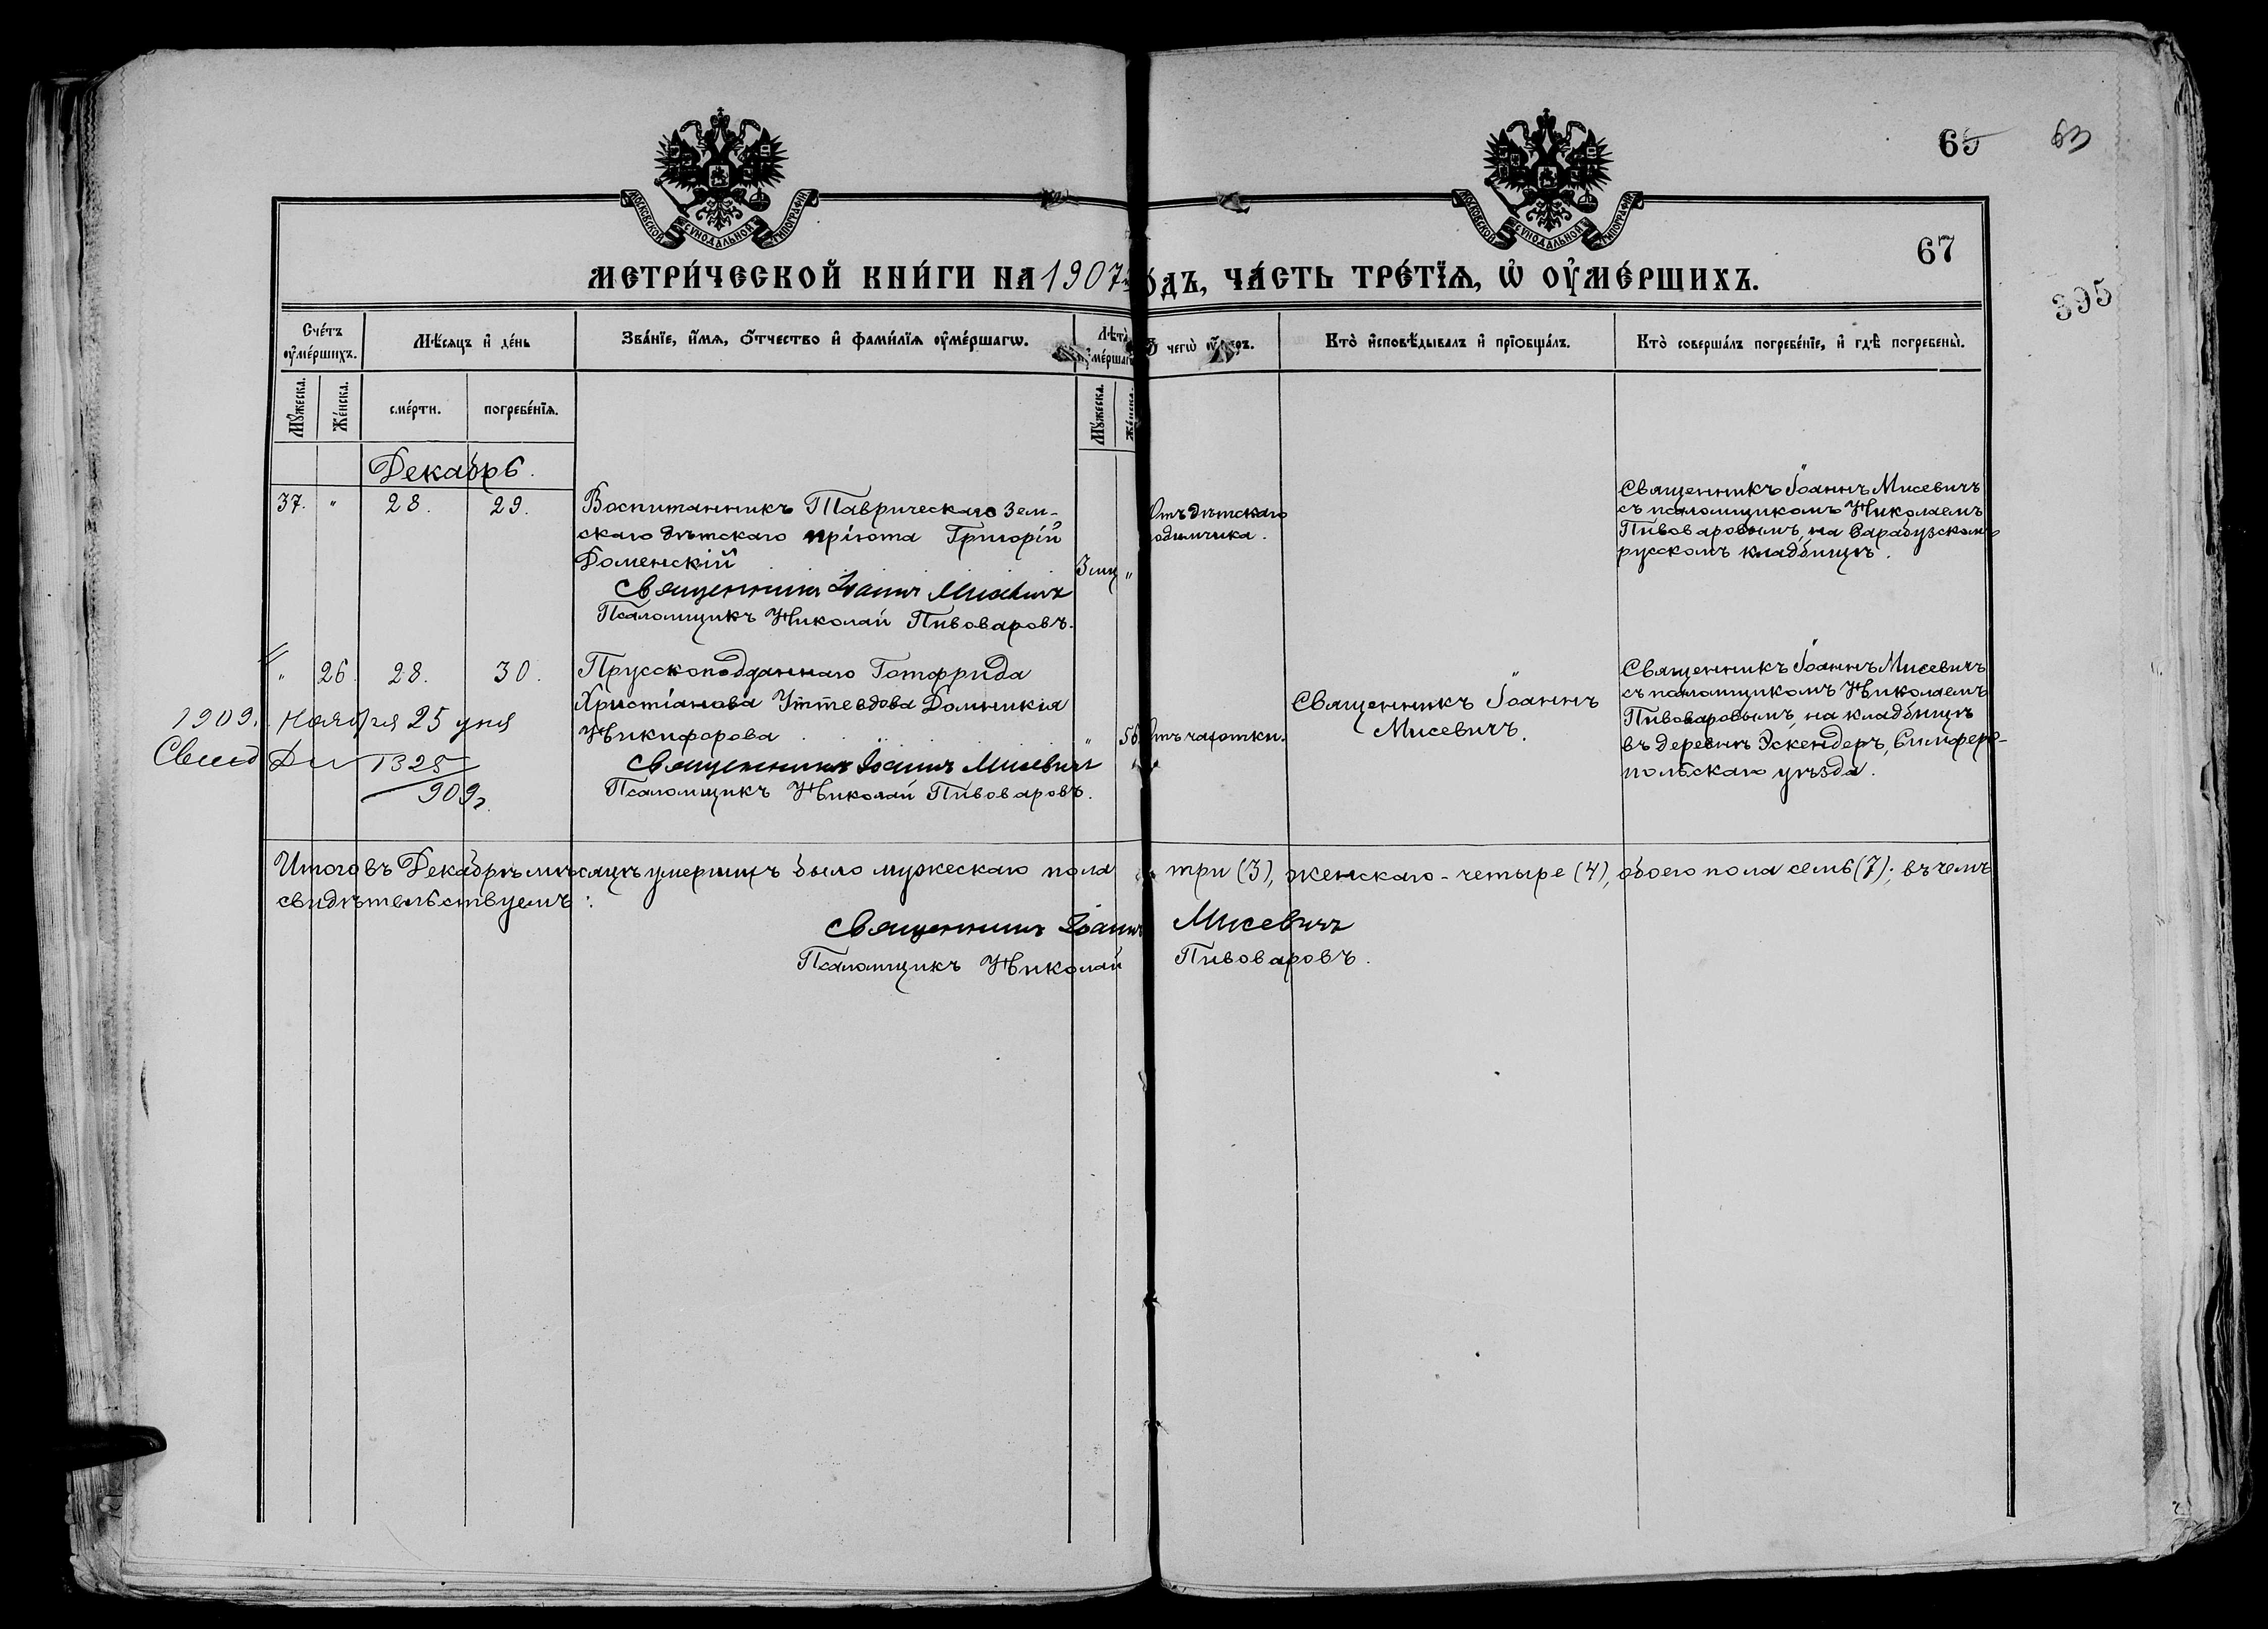 65
63
67
395
МОСКОВСКОЙ СѴНОДАЛЬНОЙ ТИПОГРАФІИ
МОСКОВСКОЙ СѴНОДАЛЬНОЙ ТИПОГРАФІИ
МЕТРИ́ЧЕСКОЙ КНИ́ГИ НА 1907 ГО́ДЪ, ЧА́СТЬ ТРЕ́ТЇѦ, Ѡ҆ ОУ҆МЕ́РШИХЪ.
Сче́тъ оу҆ме́ршихъ.
Мꙋ́жеска.
Же́нска.
Мѣ́сяцъ и҆ де́нь
сме́рти.
погребе́нїѧ.
Зва́нїе, и҆́мѧ, ѻ҆́тчество и҆ фами́лїѧ оу҆ме́ршагѡ.
Лѣ́та оу҆ме́ршагѡ
Мꙋ́жеска.
Же́нска.
Ѿ чегѡ̀ оу҆́меръ.
Кто̀ и҆сповѣ́дывалъ и҆ прїѡбща́лъ.
Кто̀ соверша́лъ погребе́нїе, и҆ гдѣ̀ погребены̀.
Декабрь.
37. " 28. 29.
Воспитанникъ Таврическаго Зем-
скаго дѣтскаго пріюта Григорій
Доменскій
3 мц "
Священникъ Іоаннъ Мисевичъ
Псаломщикъ Николай Пивоваровъ.
Отъ дѣтскаго
родимчика.
Священникъ Іоаннъ Мисевичъ
съ псаломщикомъ Николаемъ
Пивоваровымъ, на Сарабузскомъ
русскомъ кладбищѣ.
" 26. 28. 30.
Прусскоподданнаго Готфрида
Христіанова Уттевдова Домникія
Никифорова
" 56
Священникъ Іоаннъ Мисевичъ
Псаломщикъ Николай Пивоваровъ.
Отъ чахотки.
Священникъ Іоаннъ
Мисевичъ.
Священникъ Іоаннъ Мисевичъ
съ псаломщикомъ Николаемъ
Пивоваровымъ, на кладбищѣ
въ деревнѣ Эскендеръ, Симферо-
польскаго уѣзда.
1909. Ноября 25 дня
Свид
1325
909г.
Итого въ Декабрѣ мѣсяцѣ умершихъ было мужескаго пола три (3), женскаго - четыре (4), обоего пола семь (7); въ чемъ
свидѣтельствуемъ:
Священникъ Іоаннъ Мисевичъ
Псаломщикъ Николай Пивоваровъ.